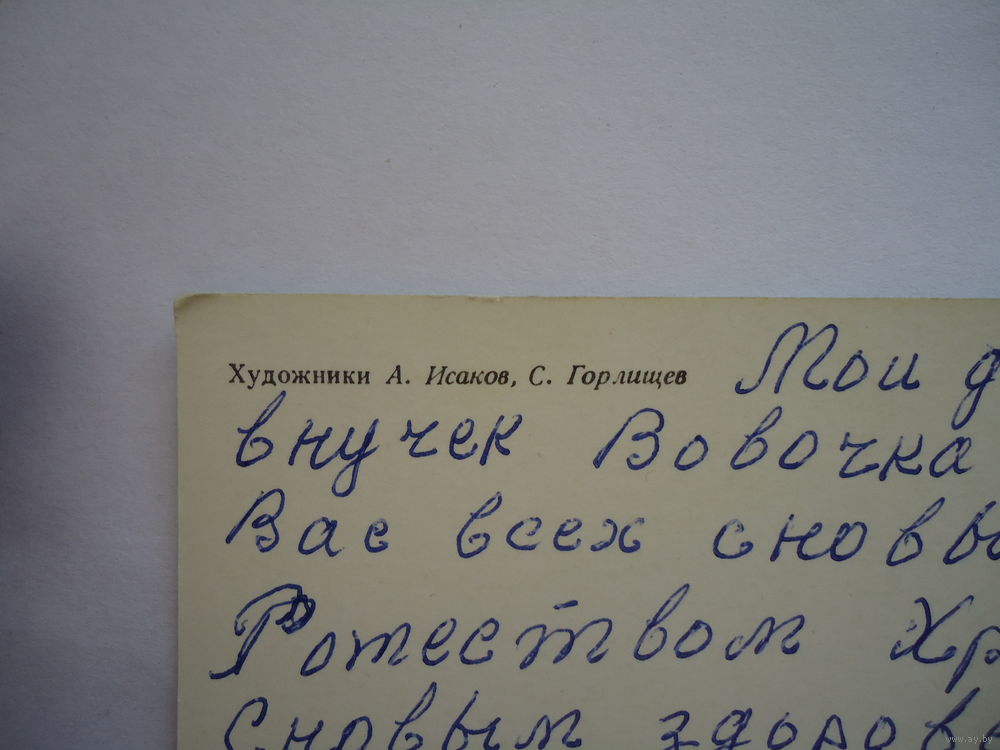 Художники А. Исаков, С. Горлищев
Мои д
внучек Вовочка
Вас всех сновы
Ротеством Хр
Сновым здоров
www.ay.by